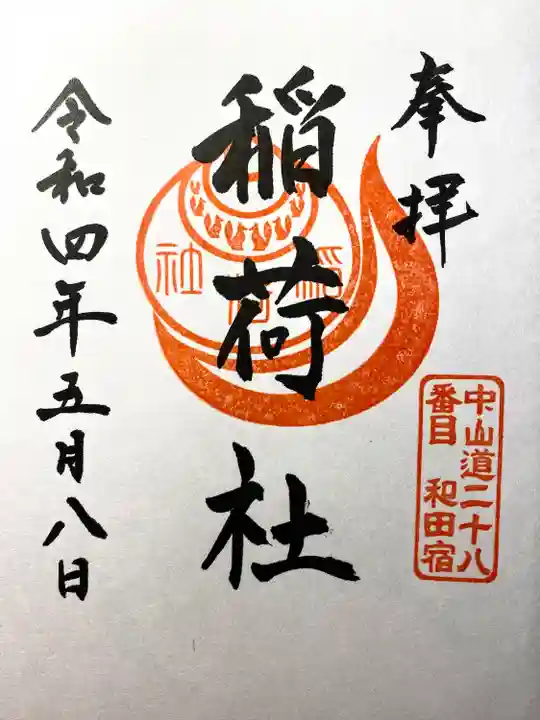 奉拝
中山道二十八
番目 和田宿
稲荷社
稲荷社
令和四年五月八日